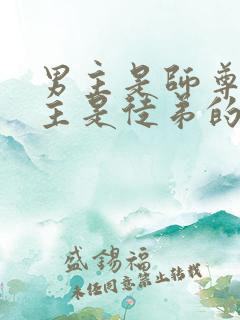 男主是師尊
主是徒弟的
盛錫福
未经同意禁止转载